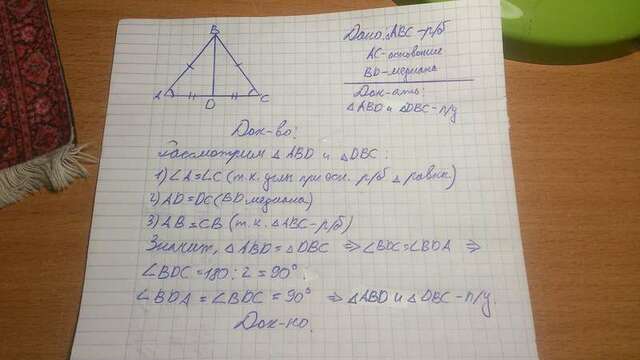 B
A
D
C
Дано: △ABC - р/б
AC - основание
BD - медиана
Док-ать:
△ABD и △DBC - п/у
Док-во:
Рассмотрим △ABD и △DBC:
1) ∠A=∠C (т.к. углы при осн. р/б △ равны)
2) AD=DC (BD медиана)
3) AB=CB (т.к. △ABC - р/б)
Значит, △ABD = △DBC ⇒ ∠BDC=∠BDA ⇒
∠BDC = 180 : 2 = 90°.
∠BDA = ∠BDC = 90° ⇒ △ABD и △DBC - п/у.
Док-но.